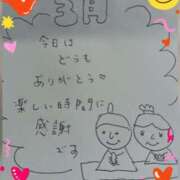 3月
今日は
どうも
ありがとう♡
楽しい時間に
感謝
です